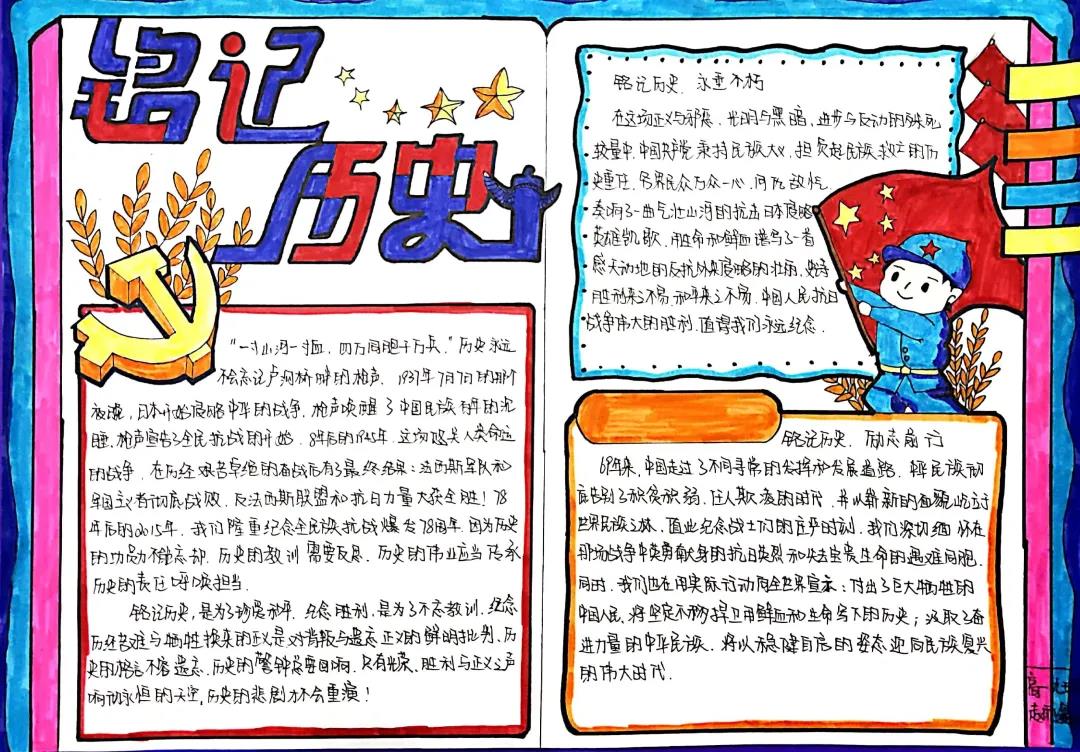 铭记
历史
"一寸山河一寸血,四万同胞十万兵。"历史永远
不会忘记卢沟桥畔的枪声。1937年7月7日的那个
夜晚,日本开始侵略中华的战争。枪声唤醒了中国民族
睡,枪声宣告了全民抗战的开始。8年后的1945年,这场攸关人类命运
的战争,在历经艰苦卓绝的奋战后有了最终结果:法西斯军队和
军国主义者彻底战败,反法西斯联盟和抗日力量大获全胜!78
年后的2015年,我们隆重纪念全民族抗战爆发78周年,因为历史
的功勋不能忘却,历史的教训需要反思,历史的伟业应当传承
历史的责任呼唤担当。
铭记历史,是为了珍爱和平,纪念胜利,是为了不忘教训,纪念
历经苦难与牺牲换来的正义是对背叛与遗忘正义的鲜明批判。历
史的格言不容遗忘,历史的警钟总要回响。只有光荣、胜利与正义之声
响彻永恒的天空,历史的悲剧才不会重演!
铭记历史、永垂不朽
在这场正义与邪恶、光明与黑暗、进步与反动的殊死
较量中,中国共产党秉持民族大义,担负起民族救亡的历
史重任,各界民众万众一心、同仇敌忾,
奏响了一曲气壮山河的抗击日本侵略
英雄凯歌,用生命和鲜血谱写了一首
感天动地的反抗外来侵略的壮丽史诗
胜利来之不易,和平来之不易,中国人民抗日
战争伟大的胜利,值得我们永远纪念。
铭记历史、励志前行
69年来,中国走过了不同寻常的发挥和发展道路。中华民族彻
底告别了积贫积弱、任人欺凌的时代,并以崭新的面貌屹立于
世界民族之林。值此纪念战士们的庄严时刻,我们深切缅怀在
那场战争中英勇献身的抗日英烈和失去宝贵生命的遇难同胞,
同时,我们也在用实际行动向全世界宣示:付出了巨大牺牲的
中国人民,将坚定不移捍卫用鲜血和生命写下的历史;汲取了奋
进力量的中华民族,将以稳健自信的姿态迎向民族复兴
的伟大时代。
高一